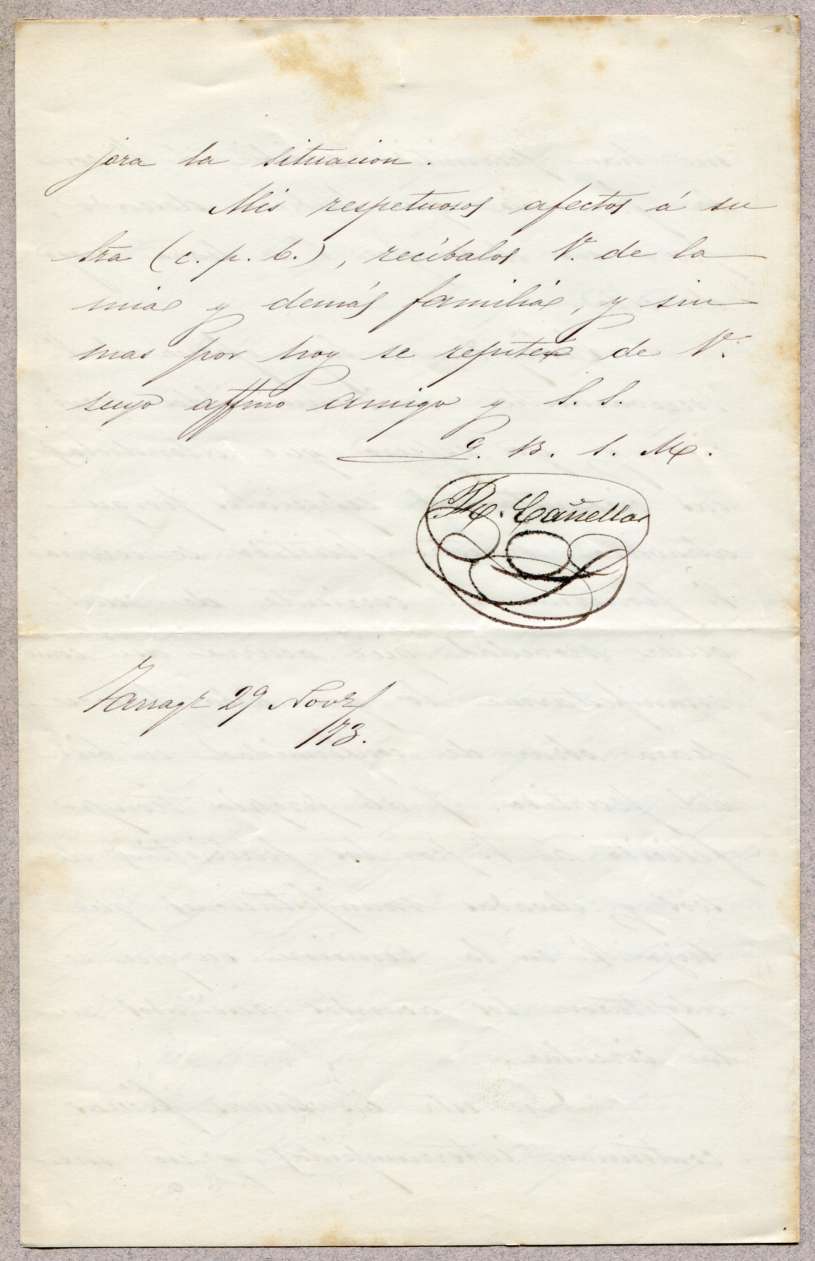 jora la situacion.
Mis respetuosos afectos á su
Sra (c. p. b.), recíbalos V. de la
mia y demás familia, y sin
mas por hoy se repite de V.
suyo affmo amigo y S. S.
Q. B. S. M.
Cañellas
Tarragª 29 Novbe
/73.